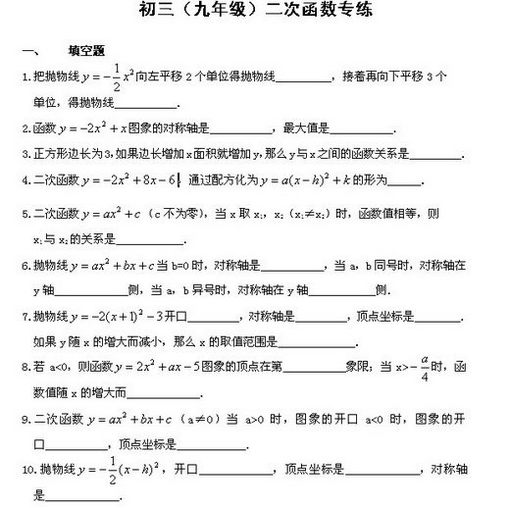 初三（九年级）二次函数专练
一、 填空题
1.把抛物线y=-\frac{1}{2}x²向左平移2个单位得抛物线________，接着再向下平移3个
单位，得抛物线________.
2.函数y=-2x²+x图象的对称轴是________，最大值是________.
3.正方形边长为3,如果边长增加x面积就增加y,那么y与x之间的函数关系是________.
4.二次函数y=-2x²+8x-6，通过配方化为y=a(x-h)²+k的形为_____.
5.二次函数y=ax²+c（c不为零），当x取x₁，x₂（x₁≠x₂）时，函数值相等，则
x₁与x₂的关系是________.
6.抛物线y=ax²+bx+c当b=0时，对称轴是________，当a，b同号时，对称轴在
y轴________侧，当a，b异号时，对称轴在y轴________侧.
7.抛物线y=-2(x+1)²-3开口______，对称轴是______，顶点坐标是______.
如果y随x的增大而减小，那么x的取值范围是________.
8.若a<0，则函数y=2x²+ax-5图象的顶点在第________象限；当x>-\frac{a}{4}时，函
数值随x的增大而________.
9.二次函数y=ax²+bx+c（a≠0）当a>0时，图象的开口a<0时，图象的开
口________，顶点坐标是________.
10.抛物线y=-\frac{1}{2}(x-h)²，开口________，顶点坐标是________，对称轴
是________.